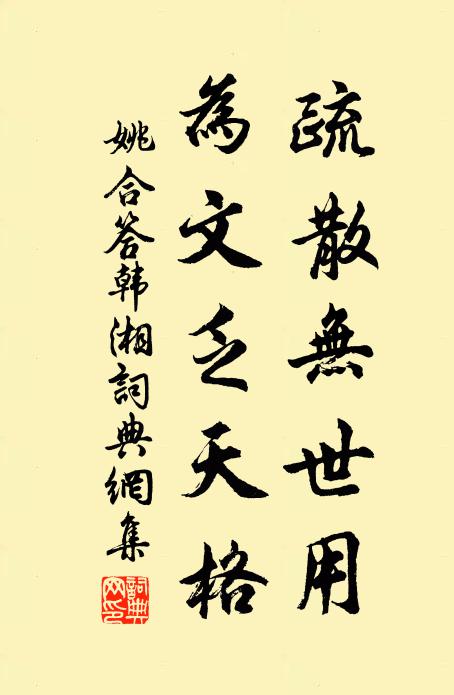 疏散無世用
為文乏天格
姚合答韩湘詞典網集
詞典网印